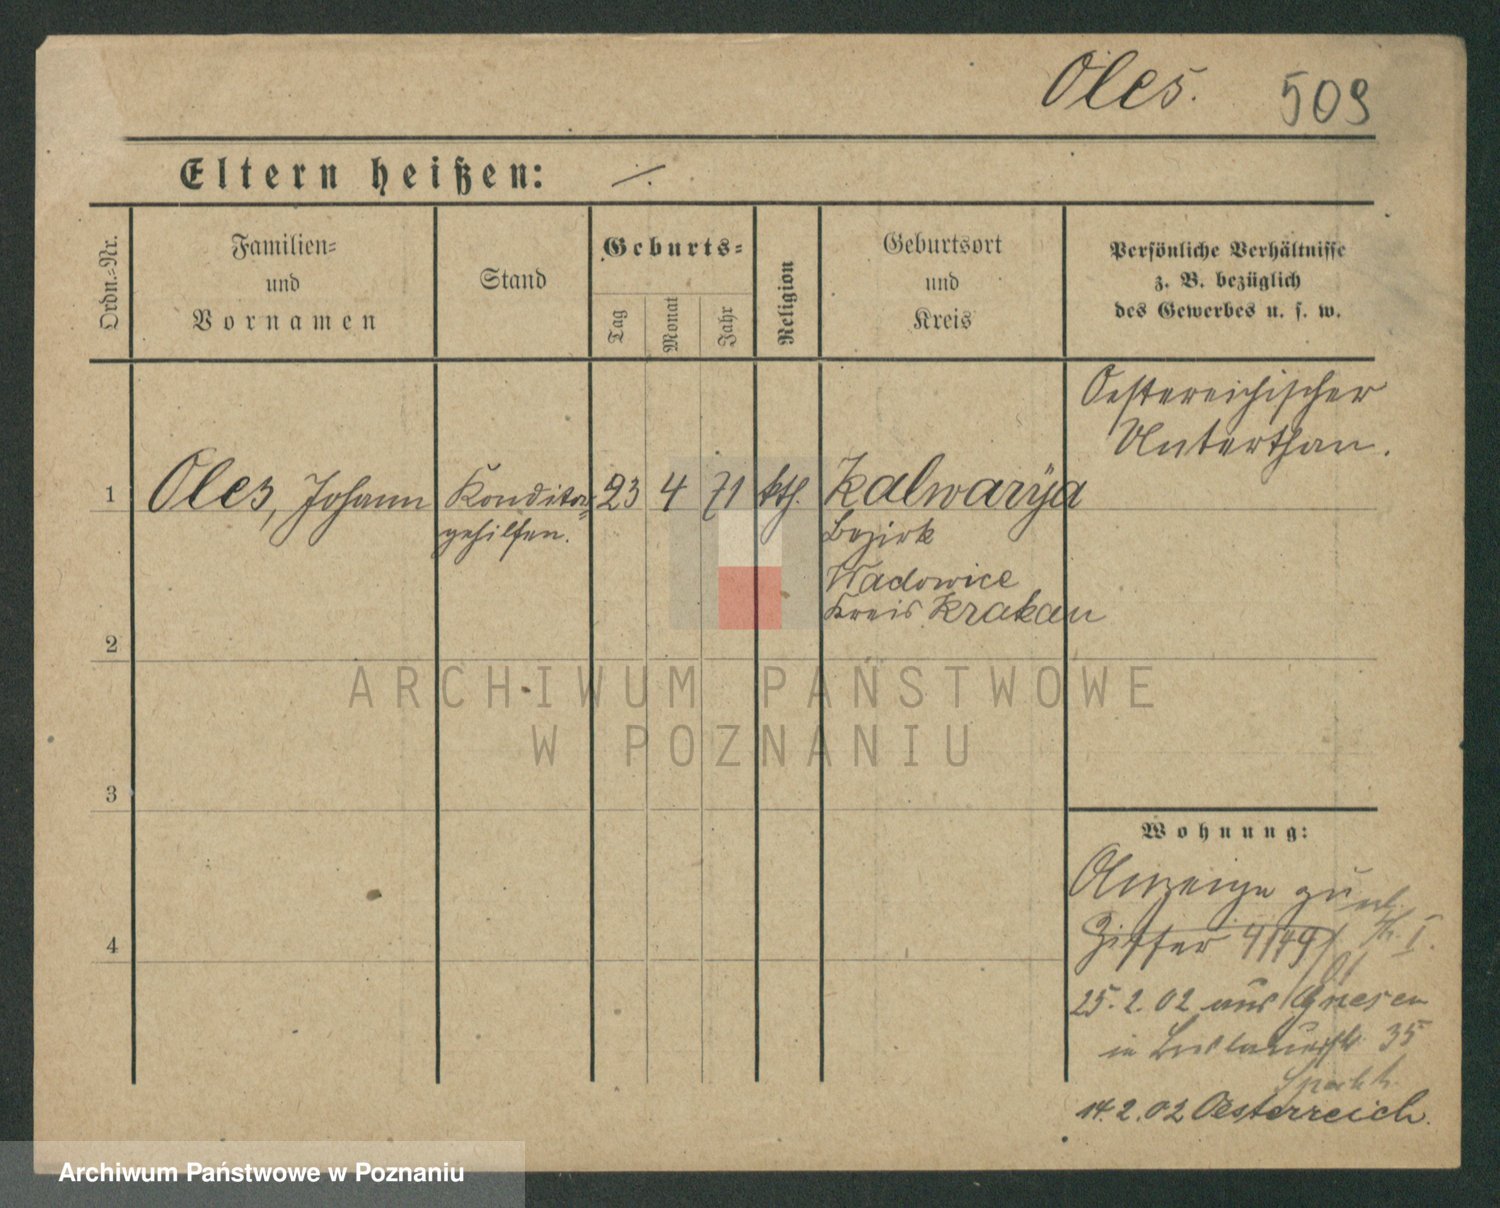 Oleś. 509
Eltern heißen: ./.
Ordn.=Nr.
Familien=
und
Vornamen
Stand
Geburts=
Tag
Monat
Jahr
Religion
Geburtsort
und
Kreis
Persönliche Verhältnisse
z. B. bezüglich
des Gewerbes u. s. w.
Oestereichischer
Unterthan.
1 Oles, Johann Konditor= 23 4 71 kth. Kalwarÿa
gehilfen. Bezirk
Wadowice
Kreis Krakau
2
3
4
Wohnung:
Anzeige zu
Ziffer 4149
25.2.02 aus Gnesen
in 35
14.2.02 Oesterreich.
ARCHIWUM PAŃSTWOWE
W POZNANIU
Archiwum Państwowe w Poznaniu